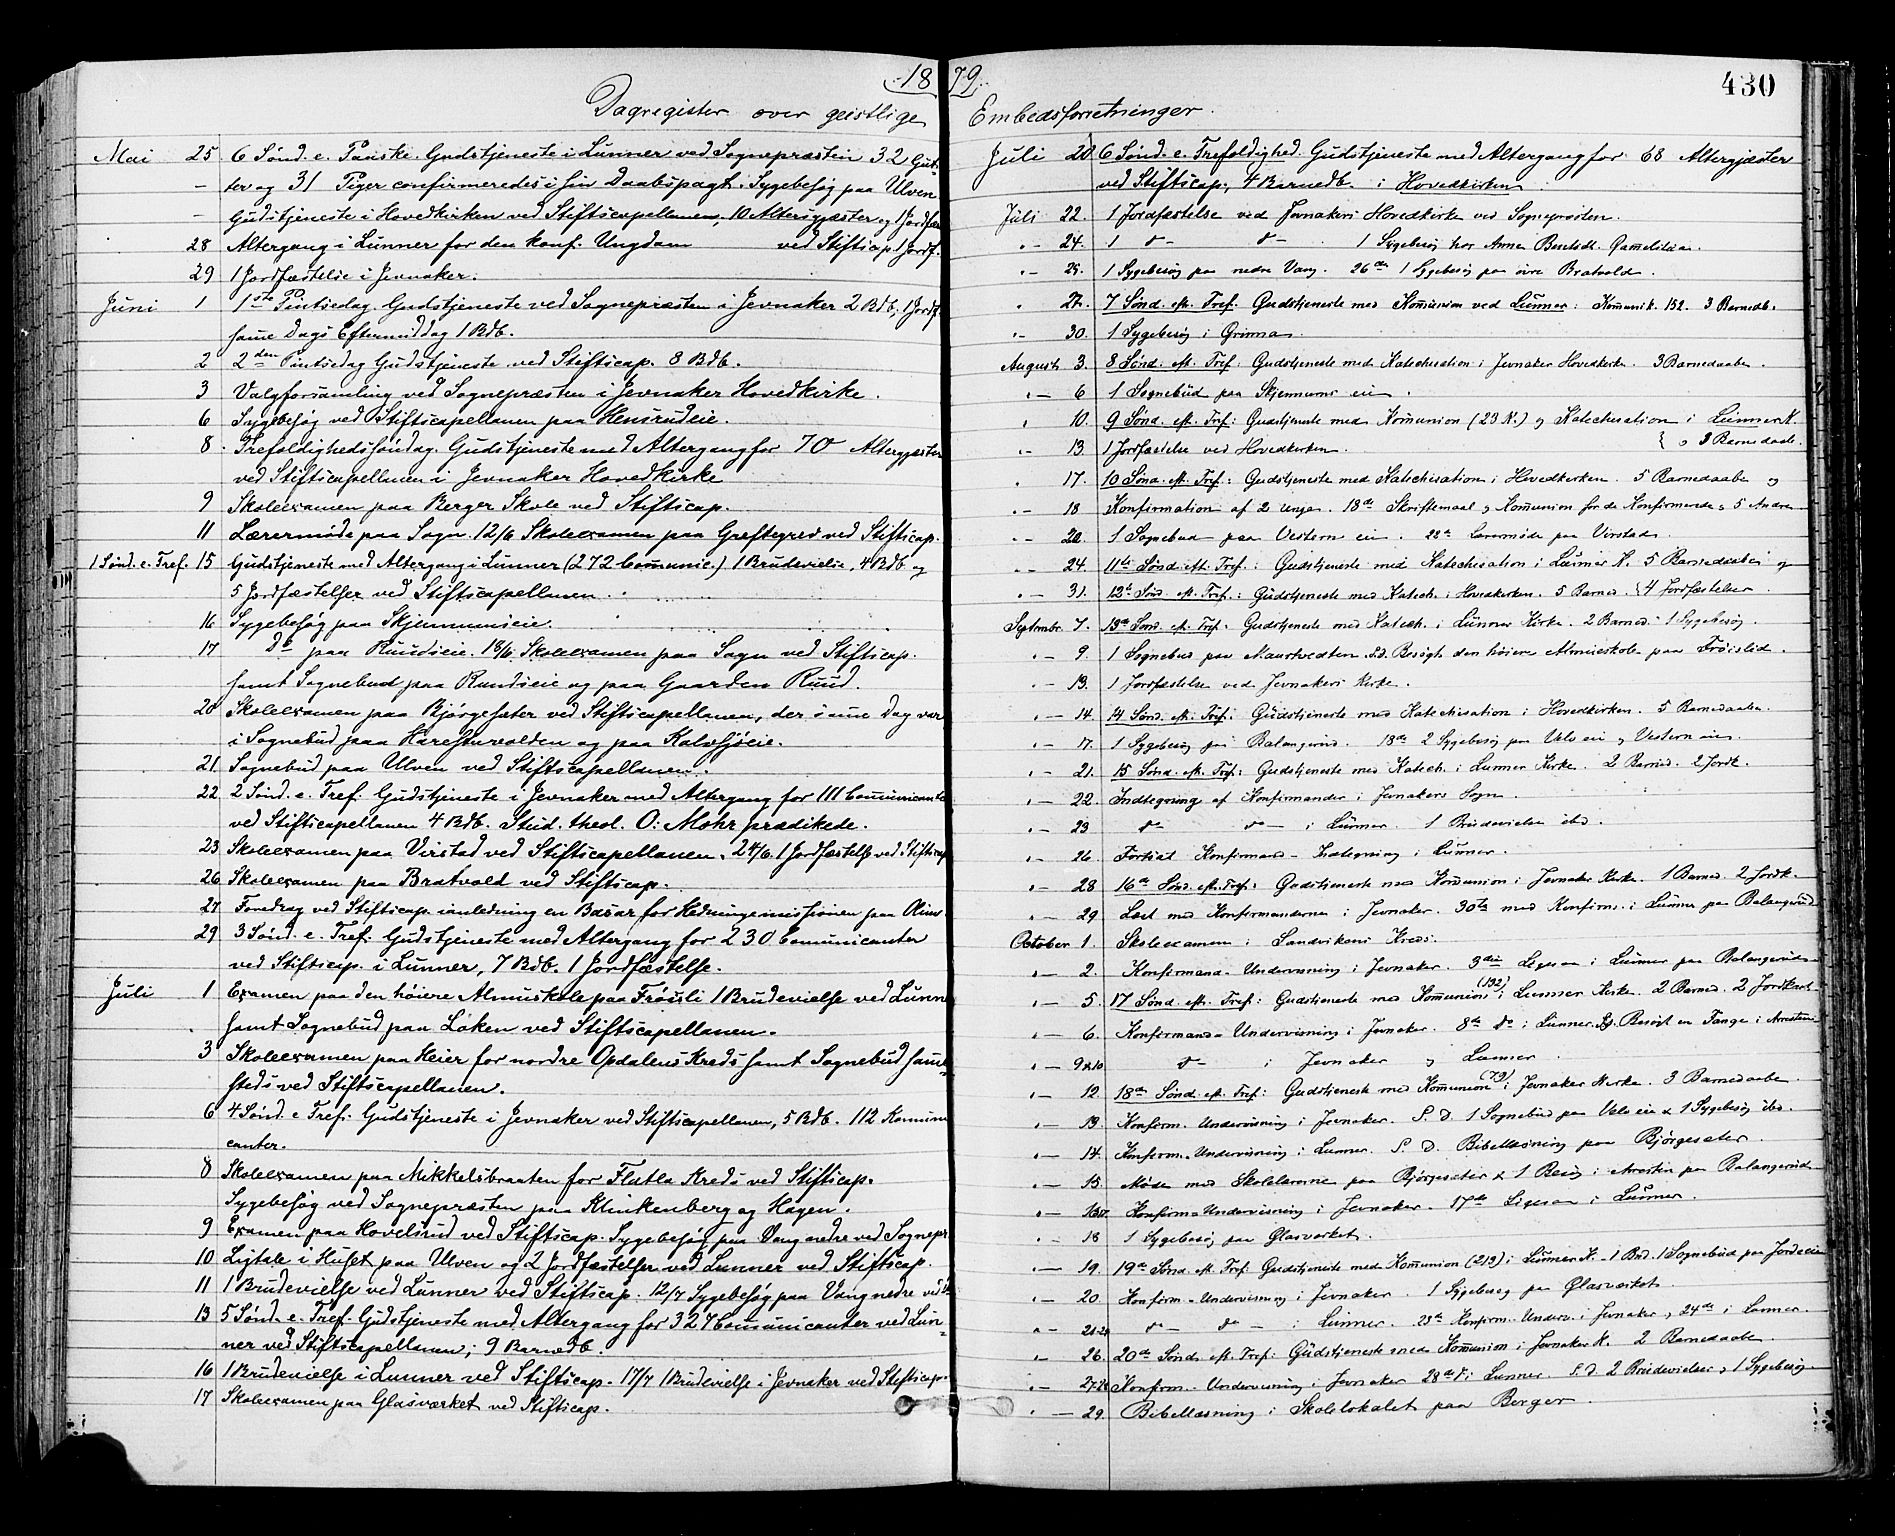 18 79.
430
Dagregister over geistlige Embedsforretninger.
Mai 25 6 Sønd. e. Paaske. Gudstjeneste i Lunner ved Sognepræsten 32 Gut-
– ter og 31 Piger confirmeredes i sin Daabspagt. Sygebesøg paa Ulven
– Gudstjeneste i Hovedkirken ved Stiftscapellanen, 10 Altersgjæster og 1 Jordfæs
28 Altergang i Lunner for den konf. Ungdom ved Stiftscap. 1 Jordf.
29 1 Jordfæstelse i Jevnaker.
Juni 1 1ste Pintsedag. Gudstjeneste ved Sognepræsten i Jevnaker 2 Bdb, 1 Jordf.
same Dags Eftermiddag 1 Bdb.
2 2den Pintsedag Gudstjeneste ved Stiftscap. 8 Bdb.
3 Valgforsamling ved Sognepræsten i Jevnaker Hovedkirke.
6 Sygebesøg ved Stiftscapellanen paa Hensrudeie.
8 Trefoldighedssøndag. Gudstjeneste med Altergang for 70 Altergjæster
ved Stiftscapellanen i Jevnaker Hovedkirke
9 Skoleexamen paa Berger Skole ved Stiftscap.
11 Læremøde paa Sogn. 12/6 Skoleexamen paa Greftegrev ved Stiftscap.
1 Sønd. e. Tref. 15 Gudstjeneste med Altergang i Lunner (272 Comunic.) 1 Brudevielse, 4 Bdb og
5 Jordfæstelser ved Stiftscapellanen.
16 Sygebesøg paa Skjennumseie.
17 Do paa Ruudseie. 18/6 Skoleexamen paa Sogn ved Stiftscap.
samt Sognebud paa Rundseie og paa Gaarden Ruud.
20 Skoleexamen paa Bjørgesæter ved Stiftscapellanen, der same Dag var
i Sognebud paa Harestuvolden og paa Kalvsjøeie.
21 Sognebud paa Ulven ved Stiftscapellanen.
22 2 Sønd. e. Tref. Gudstjeneste i Jevnaker med Altergang for 111 Comunicante
ved Stiftscapellanen 4 Bdb. Stud. theol. O. Mohr prædikede.
23 Skoleexamen paa Virstad ved Stiftscapellanen. 24/6. 1 Jordfæstelse ved Stiftscap
26 Skoleexamen paa Bratvold ved Stiftscap.
27 Foredrag ved Stiftscap. anledning en Basar for Hedningemissionen paa
29 3 Sønd. e. Tref. Gudstjeneste med Altergang for 230 Comunicanter
ved Stiftscap. i Lunner, 7 Bdb. 1 Jordfæstelse.
Juli 1 Examen paa den høiere Almuskole paa Frøisli 1 Brudevielse ved Lunn
samt Sognebud paa Løken ved Stiftscapellanen.
3 Skoleexamen paa Heier for nordre Opdalens Kreds samt Sognebud same-
steds ved Stiftscapellanen.
6 4 Sønd. e Tref. Gudstjeneste i Jevnaker ved Stiftscapellanen, 5 Bdb. 112 Komuni
canter.
8 Skoleexamen paa Mikkelsbraaten for Flatla Kreds ved Stiftscap.
Sygebesøg ved Sognepræsten paa Klinkenberg og Hagen.
9 Examen paa Hovelsrud ved Stiftscap. Sygebesøg paa Vang nedre ved Sognepr.
10 Ligtale i Huset paa Ulven og 2 Jordfæstelser ved Lunner ved Stiftscap.
11 1 Brudevielse ved Lunner ved Stiftscap. 12/7 Sygebesøg paa Vang nedre ved
13 5 Sønd. e. Tref. Gudstjeneste med Altergang for 327 Comunicanter ved Lun-
ner ved Stiftscapellanen; 9 Barnedb.
16 1 Brudevielse i Lunner ved Stiftscap. 17/7 1 Brudevielse i Jevnaker ved Stiftscap.
17 Skoleexamen paa Glasværket ved Stiftscap.
Juli 20 6 Sønd. e. Trefoldighed. Gudstjeneste med Altergang for 68 Altergjæster
ved Stiftscap, 4 Barnedb. i Hovedkirken.
Juli 22. 1 Jordfæstelse ved Jevnakers Hovedkirke ved Sognepræsten.
" – 24. 1 do – do – 1 Sygebesøg hos Anne
" – 25. 1 Sygebesøg paa nedre Vang. 26de 1 Sygebesøg paa øvre Bratvold.
" 27. 7 Sønd. eft. Tref. Gudstjeneste med Komunion ved Lunner: Komunik. 152. 3 Barnedb.
" – 30. 1 Sygebesøg i Grinna.
August 3. 8 Sønd. eft. Tref. Gudstjeneste med Katechisation i Jevnaker Hovedkirke. 3 Barnedaaber.
" – 6 1 Sognebud paa Skjennums eie.
" 10. 9 Sønd. eft. Tref: Gudstjeneste med Komunion (23 K.) og Katechisation i Lunner K.
" – 13. 1 Jordfæstelse ved Hovedkirken. { og 3 Barnedaab.
" 17. 10 Sønd. eft. Tref: Gudstjeneste med Katechisation i Hovedkirken. 5 Barnedaaber og
" – 18 Konfirmation af 2 unge. 18de Skriftemaal og Komunion for de Konfirmerede og 5 Andre
" – 22. 1 Sognebud paa Vestern eie. 23de Læremøde paa Virstad.
" – 24. 11te Sønd. eft. Tref.: Gudstjeneste med Katechisation i Lunner K. 5 Barnedaaber og
" – 31. 12te Sønd. eft. Tref.: Gudstjeneste med Katech. i Hovedkirken. 5 Barned. { 4 Jordfæstelser.
Septembr. 7. 13de Sønd. eft. Tref. Gudstjeneste med Katech. i Lunner Kirke. 2 Barned. 1 Sygebesøg.
" – 9. 1 Sognebud paa Maurtvedten. S.D. Besøgt den høiere Almueskole paa Frøislid.
" – 13. 1 Jordfæstelse ved Jevnakers Kirke.
" – 14. 14 Sønd. eft. Tref: Gudstjeneste med Katechisation i Hovedkirken. 5 Barnedaaber.
" – 17. 1 Sygebesøg paa Balangerud. 18de 2 Sygebesøg paa Velo eie og Vestern eie.
" – 21. 15 Sønd. eft. Tref: Gudstjeneste med Katech. i Lunner Kirke. 2 Barned. 2 Jordf.
" – 22. Indtegning af Konfirmander i Jevnakers Sogn.
" – 23 do do – i Lunner. 1 Brudevielse ibd.
" – 26. Fortsat Konfirmand-Indtegning i Lunner.
" – 28 16de Sønd. eft. Tref: Gudstjeneste med Komunion i Jevnaker Kirke. 1 Barned. 2 Jordf.
" – 29. Læst med Konfirmanderne i Jevnaker. 30te med Konfirm. i Lunner paa Balangerud
October 1. Skoleexamen i Sandvikens Kreds.
" – 2. Konfirmand-Undervisning i Jevnaker. 3die Ligesaa i Lunner paa Balangerud
" – 5. 17 Sønd. eft. Tref: Gudstjeneste med Komunion (192) i Lunner Kirke. 2 Barned. 2 Jordkast.
" – 6. Konfirmand-Undervisning i Jevnaker. 8de do i Lunner. Besøgt en Fange i Arresten
" – 9 & 10 do i Jevnaker og Lunner.
" – 12 18de Sønd. eft. Tref: Gudstjeneste med Komunion (79) i Jevnaker Kirke. 3 Barnedaaber.
" – 13. Konfirm. Undervisning i Jevnaker. S. D. 1 Sognebud paa Velo eie & 1 Sygebesøg ibd.
" – 14. Konfirm.-Undervisning i Lunner. S. D. Bibellæsning paa Bjørgesæter.
" – 15. Møde med Skolelærerne paa Bjørgesæter & 1 Besøg i Arresten paa Balangerud
" – 16 Konfirm-Undervisning i Jevnaker. 17de Ligesaa i Lunner.
" – 18 1 Sygebesøg paa Glasværket.
" – 19. 19de Sønd. eft. Tref. Gudstjeneste med Komunion (213) i Lunner K. 1 Brd. 1 Sognebud paa
" – 20. Konfirm-Undervisning i Jevnaker. 1 Sygebesøg paa Glasværket.
" – 21-22 do – do – i Lunner. 23de Konfirm. Underv. i Jevnaker, 24de i Lunner.
" – 26. 20de Sønd. eft. Tref: Gudstjeneste med Komunion i Jevnaker K. 2 Barnedaaber.
" – 27-28 Konfirm.-Undervisning i Jevnaker 28de do i Lunner S.D. 2 Brudevielser og 1 Sygebesøg
" – 29. Bibellæsning i Skolelokalet paa Berger.